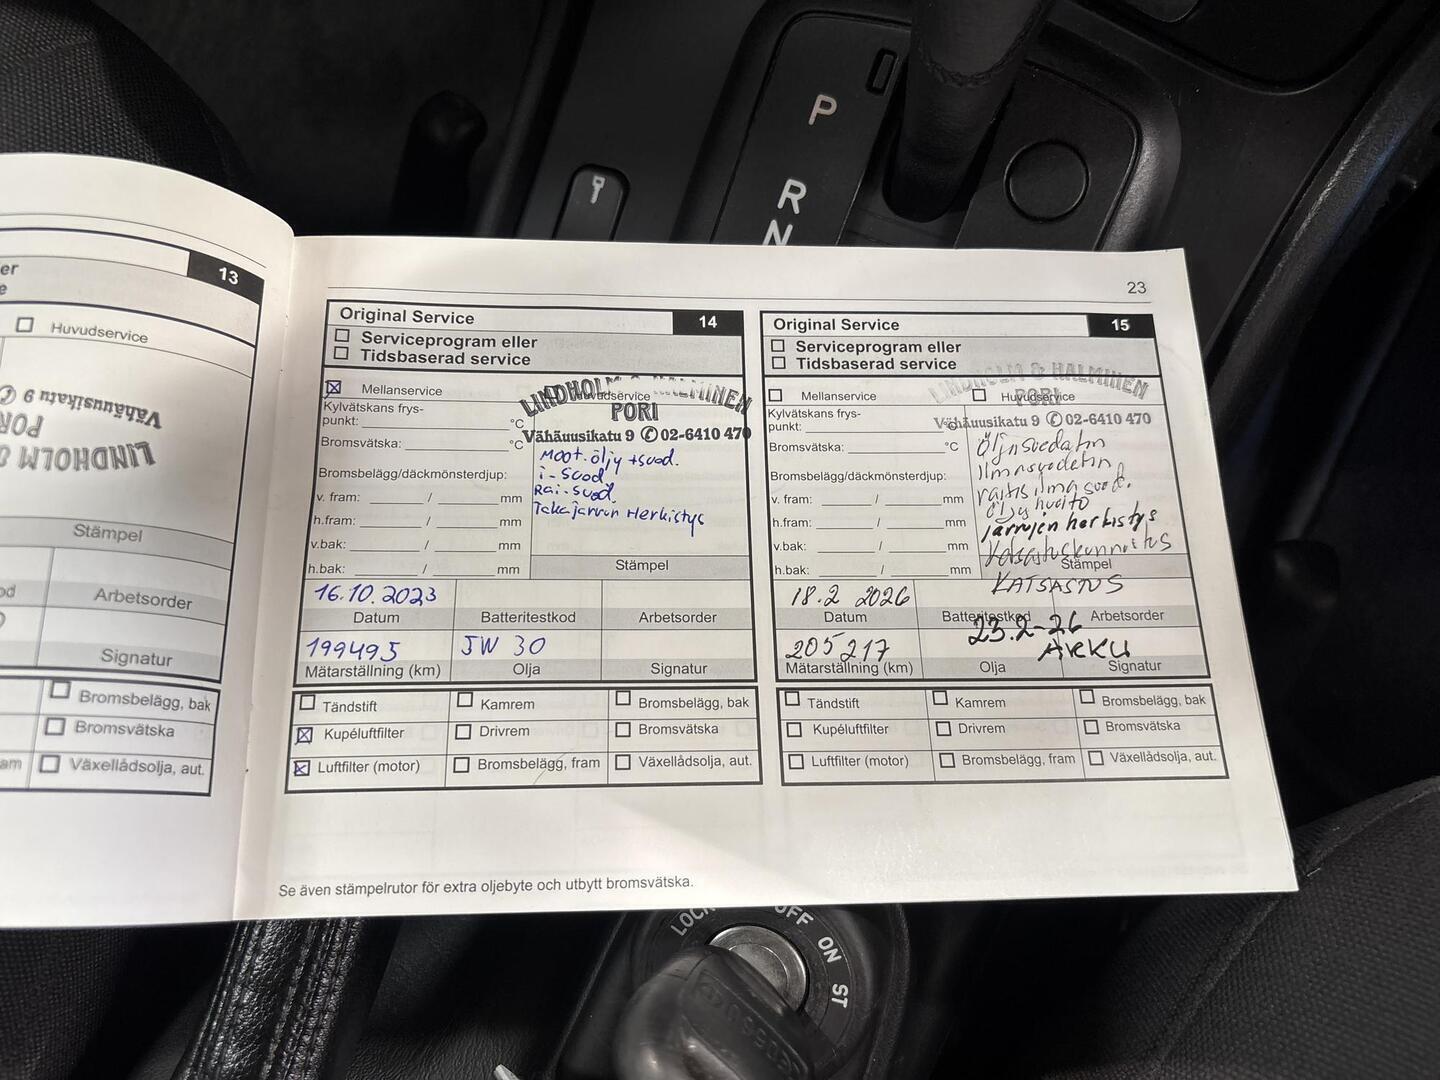 P
R
N
13
er
e
Huvudservice
Vähäuusikatu 9 ✆
PORI
LINDHOLM &
Stämpel
od
Arbetsorder
Signatur
Bromsbelägg, bak
Bromsvätska
am
Växellådsolja, aut.
23
Original Service
14
Serviceprogram eller
Tidsbaserad service
Mellanservice
Huvudservice
LINDHOLM & HALMINEN
PORI
Vähäuusikatu 9 ✆ 02-6410 470
Kylvätskans frys-
punkt:
°C
Bromsvätska:
°C
Bromsbelägg/däckmönsterdjup:
v. fram: / mm
h.fram: / mm
v.bak: / mm
h.bak: / mm
Moot. öljy +suod.
i-suod
Rai-suod.
Takajarrun Herkistys
Stämpel
16.10.2023
Datum
Batteritestkod
Arbetsorder
199495
5W 30
Mätarställning (km)
Olja
Signatur
Tändstift
Kamrem
Bromsbelägg, bak
Kupéluftfilter
Drivrem
Bromsvätska
Luftfilter (motor)
Bromsbelägg, fram
Växellådsolja, aut.
Original Service
15
Serviceprogram eller
Tidsbaserad service
Mellanservice
Huvudservice
LINDHOLM & HALMINEN
PORI
Vähäuusikatu 9 ✆ 02-6410 470
Kylvätskans frys-
punkt:
°C
Bromsvätska:
°C
Bromsbelägg/däckmönsterdjup:
v. fram: / mm
h.fram: / mm
v.bak: / mm
h.bak: / mm
raitis ilma suod.
öljy huolto
jarrujen herkistys
Stämpel
KATSASTUS
18.2 2026
Datum
Batteritestkod
Arbetsorder
23.2-26
AKKU
205217
Mätarställning (km)
Olja
Signatur
Tändstift
Kamrem
Bromsbelägg, bak
Kupéluftfilter
Drivrem
Bromsvätska
Luftfilter (motor)
Bromsbelägg, fram
Växellådsolja, aut.
Se även stämpelrutor för extra oljebyte och utbytt bromsvätska.
LOCK
OFF
ON
ST